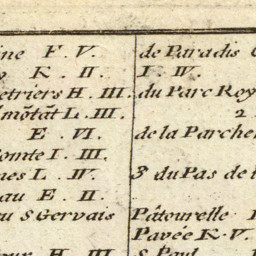 ine F. V.
K. II.
etriers H. III.
L. III.
E. VI.
omte I. III.
nes L. IV.
au E. II.
S Gervais
H. III
de Paradis
I. IV.
du Parc Roy
2
de la Parche
3 du Pas de
Pâtourelle
Pavée K. V.
S. Paul